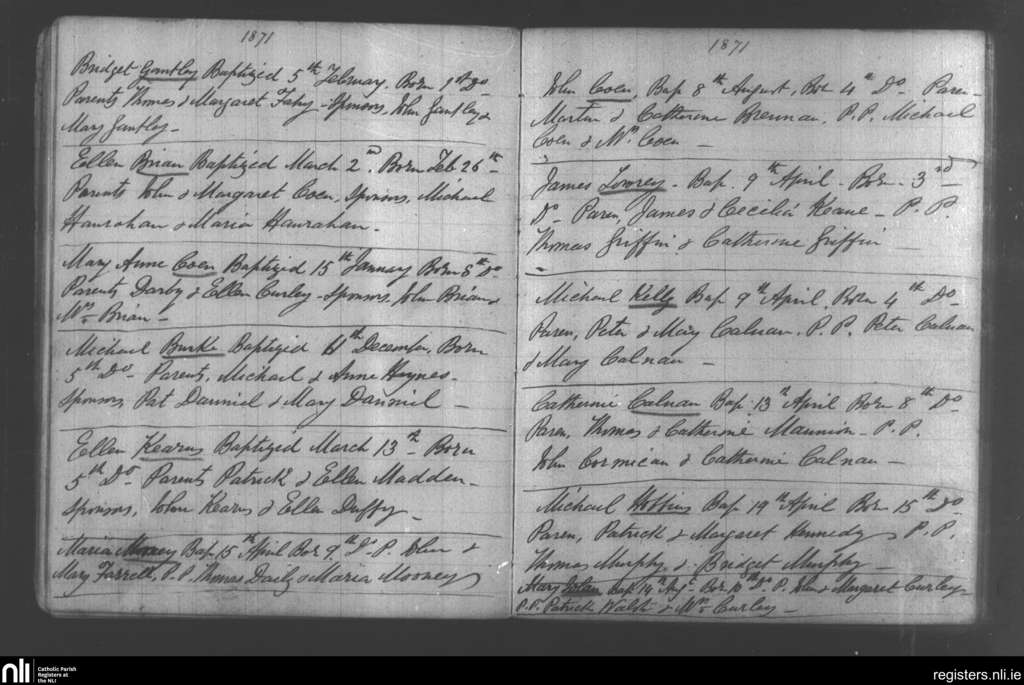 1871
Bridget Gantley Baptized 5th February. Born 1st Do
Parents Thomas & Margaret Fahy - Sponsors, John Gantley &
Mary Gantley -
Ellen Brian Baptized March 2nd. Born Feb 26th
Parents John & Margaret Coen, Sponsors, Michael
Hanrahan & Maria Hanrahan -
Mary Anne Coen Baptized 15th January Born 8th Do
Parents Darby & Ellen Curley - Sponsors, John Brian &
Wm Brian -
Michael Burke Baptized 11th December, Born
5th Do - Parents, Michael & Anne Haynes -
Sponsors, Pat Danniel & Mary Danniel -
Ellen Kearns Baptized March 13th - Born
5th Do - Parents Patrick & Ellen Madden -
Sponsors, John Kearns & Ellen Duffy -
Maria Mooney Bap. 15th April Bor 9th Do P. John &
Mary Farrell, P.P. Thomas Daily & Maria Mooney
1871
John Coen, Bap 8th August, Bor 4th Do Paren -
Martin & Catherine Brennan, P.P. Michael
Coen & Wm Coen -
James Lowrey - Bap. 9th April - Born - 3rd
Do Paren, James & Cecilia Keane - P.P.
Thomas Griffin & Catherine Griffin -
Michael Kelly Bap 9th April, Born 4th Do -
Paren, Peter & Mary Calnan. P.P. Peter Calnan
& Mary Calnan -
Catherine Calnan Bap. 13th April Born 8th Do
Paren, Thomas & Catherine Mannion - P.P.
John Cormican & Catherine Calnan -
Michael Bap 19th April Born 15th Do
Paren, Patrick & Margaret Kennedy P.P.
Thomas Murphy, & Bridget Murphy -
Mary Bap 14th Bor 10th Do P. John & Margaret Curley -
P.P. Patrick Walsh & Wm Curley -
nli
Catholic Parish
Registers at
the NLI
registers.nli.ie